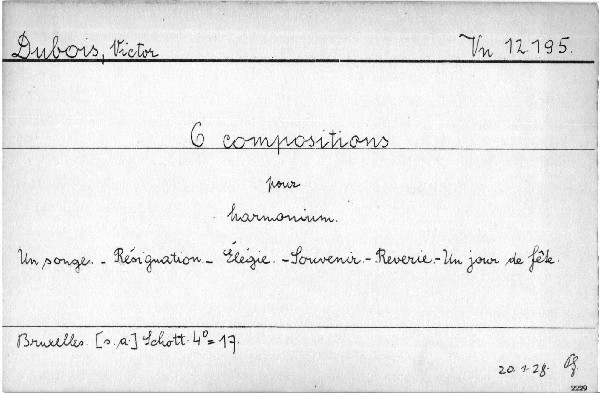 Dubois, Victor
Vn 12.195.
6 compositions
pour
harmonium.
Un songe. - Résignation - Élégie. - Souvenir. - Reverie. - Un jour de fête.
Bruxelles. [s.a.] Schott. 4° = 17.
20.1.28.
2229